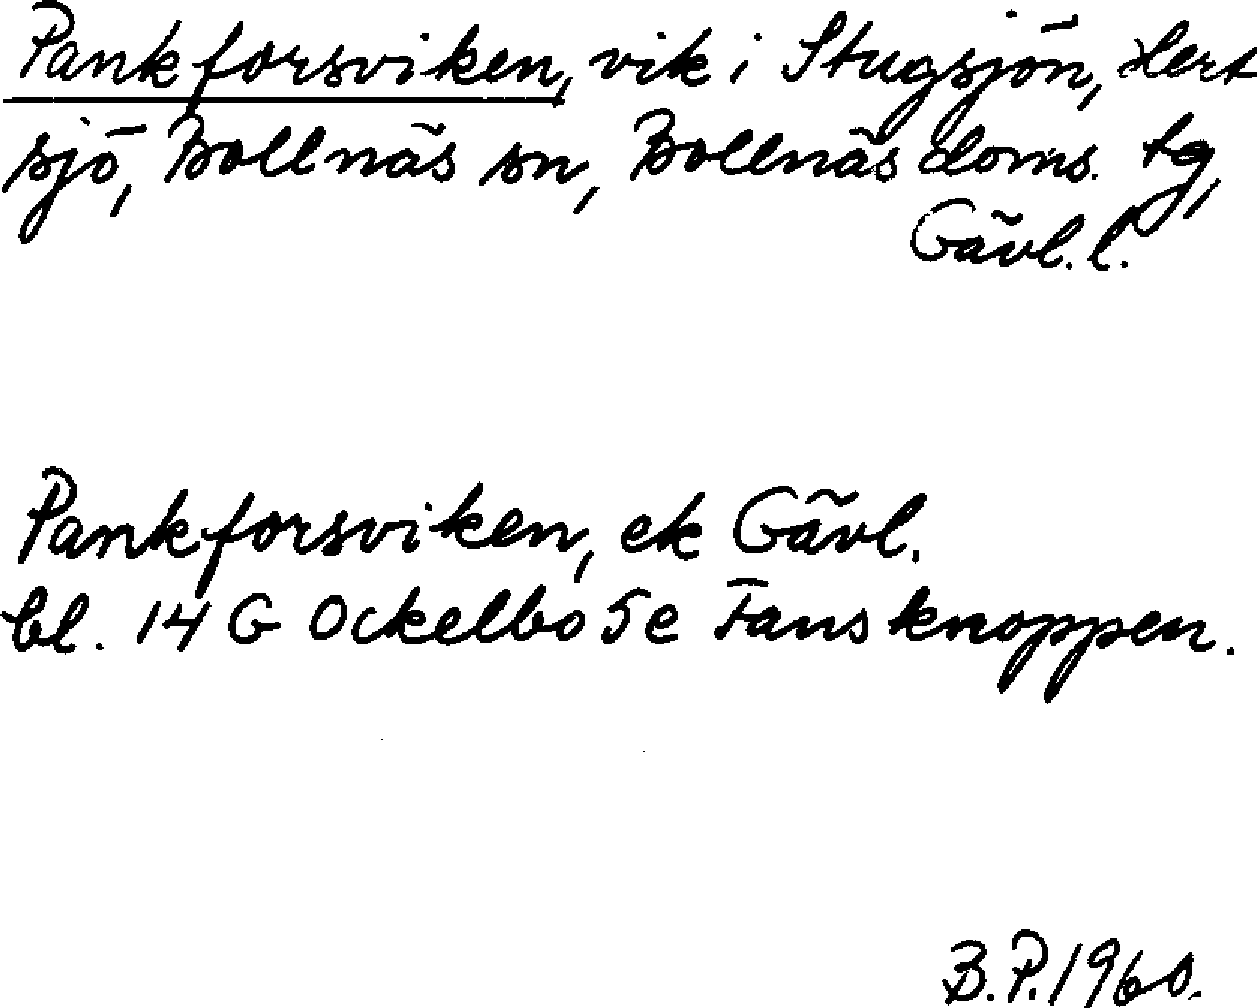 Pankforsviken, vik i Stugsjön, Hert
sjö, Bollnäs sn, Bollnäs doms. tg,
Gävl. l.
Pankforsviken, ek Gävl.
bl. 14 G Ockelbo 5 e Fansknoppen.
B.P. 1960.